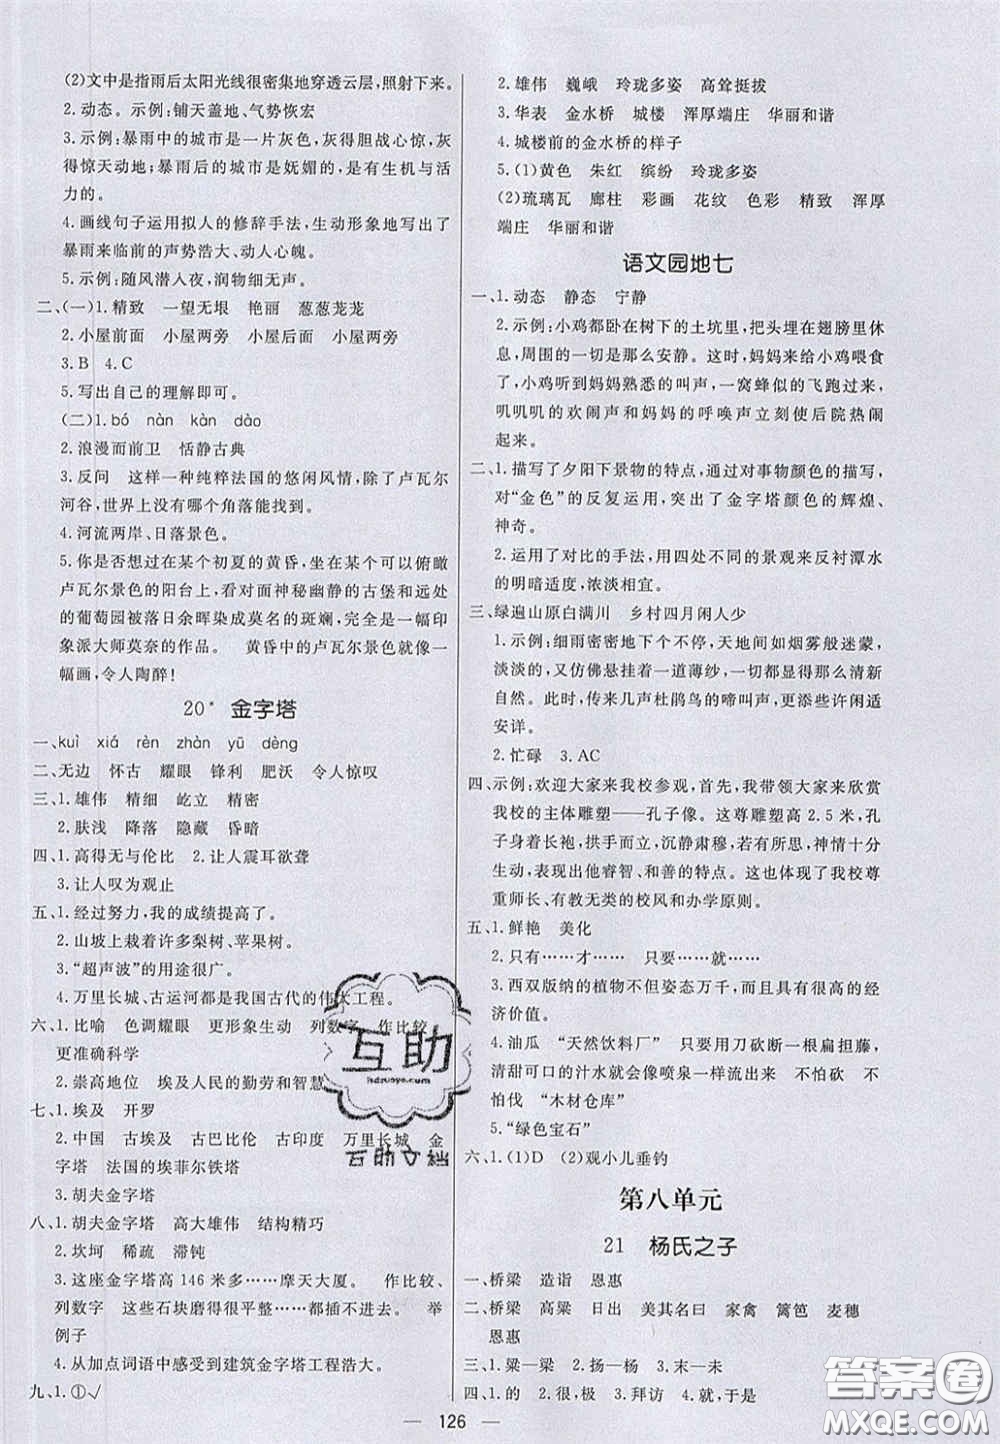 (2)文中是指雨后太阳光线很密集地穿透云层,照射下来。
2.动态。示例:铺天盖地、气势恢宏
3.示例:暴雨中的城市是一片灰色,灰得胆战心惊,灰
得惊天动地;暴雨后的城市是妩媚的,是有生机与活
力的。
4.画线句子运用拟人的修辞手法,生动形象地写出了
暴雨来临前的声势浩大、动人心魄。
5.示例:随风潜入夜,润物细无声。
二、(一)1.精致 一望无垠 艳丽 葱葱茏茏
2.小屋前面 小屋两旁 小屋后面 小屋两旁
3.B 4.C
5.写出自己的理解即可。
(二)1.bó nàn kàn dào
2.浪漫而前卫 恬静古典
3.反问 这样一种纯粹法国的悠闲风情,除了卢瓦尔
河谷,世界上没有哪个角落可以找到。
4.河流两岸、日落景色。
5.你是否想过在某个初夏的黄昏,坐在某个可以俯瞰
卢瓦尔景色的阳台上,看对面神秘幽静的古堡和近处
的葡萄园被落日余晖染成莫名的斑斓,完全是一幅印
象派大师莫奈的作品。 黄昏中的卢瓦尔景色就像一
幅画,令人陶醉!
20* 金字塔
一、kuì xiá rèn zhàn yū dèng
二、无边 怀古 耀眼 锋利 肥沃 令人惊叹
三、1.雄伟 精细 屹立 精密
2.肤浅 降落 隐藏 昏暗
四、1.高得无与伦比 2.让人震耳欲聋
3.让人叹为观止
五、1.经过努力,我的成绩提高了。
2.山坡上栽着许多梨树、苹果树。
3.“超声波”的用途很广。
4.万里长城、古运河都是我国古代的伟大工程。
六、1.比喻 色调耀眼 更形象生动 列数字 作比较
更准确科学
2.崇高地位 埃及人民的勤劳和智慧
七、1.埃及 开罗
2.中国 古埃及 古巴比伦 古印度 万里长城 金
字塔 法国的埃菲尔铁塔
3.胡夫金字塔
八、1.胡夫金字塔 高大雄伟 结构精巧
2.坎坷 稀疏 滞钝
3.这座金字塔高 146 米多……摩天大厦。 作比较、
列数字 这些石块磨得很平整……都插不进去。 举
例子
4.从加点词语中感受到建筑金字塔工程浩大。
九、1.①√
2.雄伟 巍峨 玲珑多姿 高耸挺拔
3.华表 金水桥 城楼 浑厚端庄 华丽和谐
4.城楼前的金水桥的样子
5.(1)黄色 朱红 缤纷 玲珑多姿
(2)琉璃瓦 廊柱 彩画 花纹 色彩 精致 浑厚
端庄 华丽和谐
语文园地七
一、1.动态 静态 宁静
2.示例:小鸡都卧在树下的土坑里,把头埋在翅膀里休
息,周围的一切是那么安静。妈妈走来给小鸡喂食
了,小鸡听到妈妈熟悉的叫声,一窝蜂似的飞跑过来,
叽叽叽的欢闹声和妈妈的呼唤声立刻使后院热闹
起来。
二、1.描写了夕阳下景物的特点,通过对事物颜色的描写,
对“金色”的反复运用,突出了金字塔颜色的辉煌、
神奇。
2.运用了对比的手法,用四处不同的景观来反衬潭水
的明暗适度,浓淡相宜。
三、绿遍山原白满川 乡村四月闲人少
1.示例:细雨密密地下个不停,天地间如烟雾般迷蒙,
淡淡的,又仿佛悬挂着一道薄纱,一切都是那么清新
自然。此时,传来几声杜鹃鸟的啼叫声,更添些许闲适
安详。
2.忙碌 3.AC
四、示例:欢迎大家来我校参观,首先,我带领大家来欣赏
我校的主体雕塑——孔子像。这尊雕塑高 2.5 米,孔
子身着长袍,拱手而立,沉静肃穆,若有所思,神情十分
生动,突出他睿智、和善的特点。这也体现了我校尊
重师长,有教无类的校风和办学原则。
五、1.鲜艳 美化
2.只有……才…… 只要……就……
3.西双版纳的植物不但姿态万千,而且有很大的经
济价值。
4.油瓜 “天然饮料厂” 只要用刀砍断一根扁担藤,
清甜可口的汁水就会像喷泉一样流出来 不怕砍 不
怕伐 “木材仓库”
5.“绿色宝石”
六、1.(1)D (2)观小儿垂钓
第八单元
21 杨氏之子
一、桥梁 造诣 恩惠
二、桥梁 高粱 日出 美其名曰 家禽 篱笆 麦穗
恩惠
三、1.粱—梁 2.扬—杨 3.末—未
四、1.的 2.很,极 3.拜访 4.就,于是
互助
hdzuoye.com
互助文档
答案圈
MXQE.COM
126